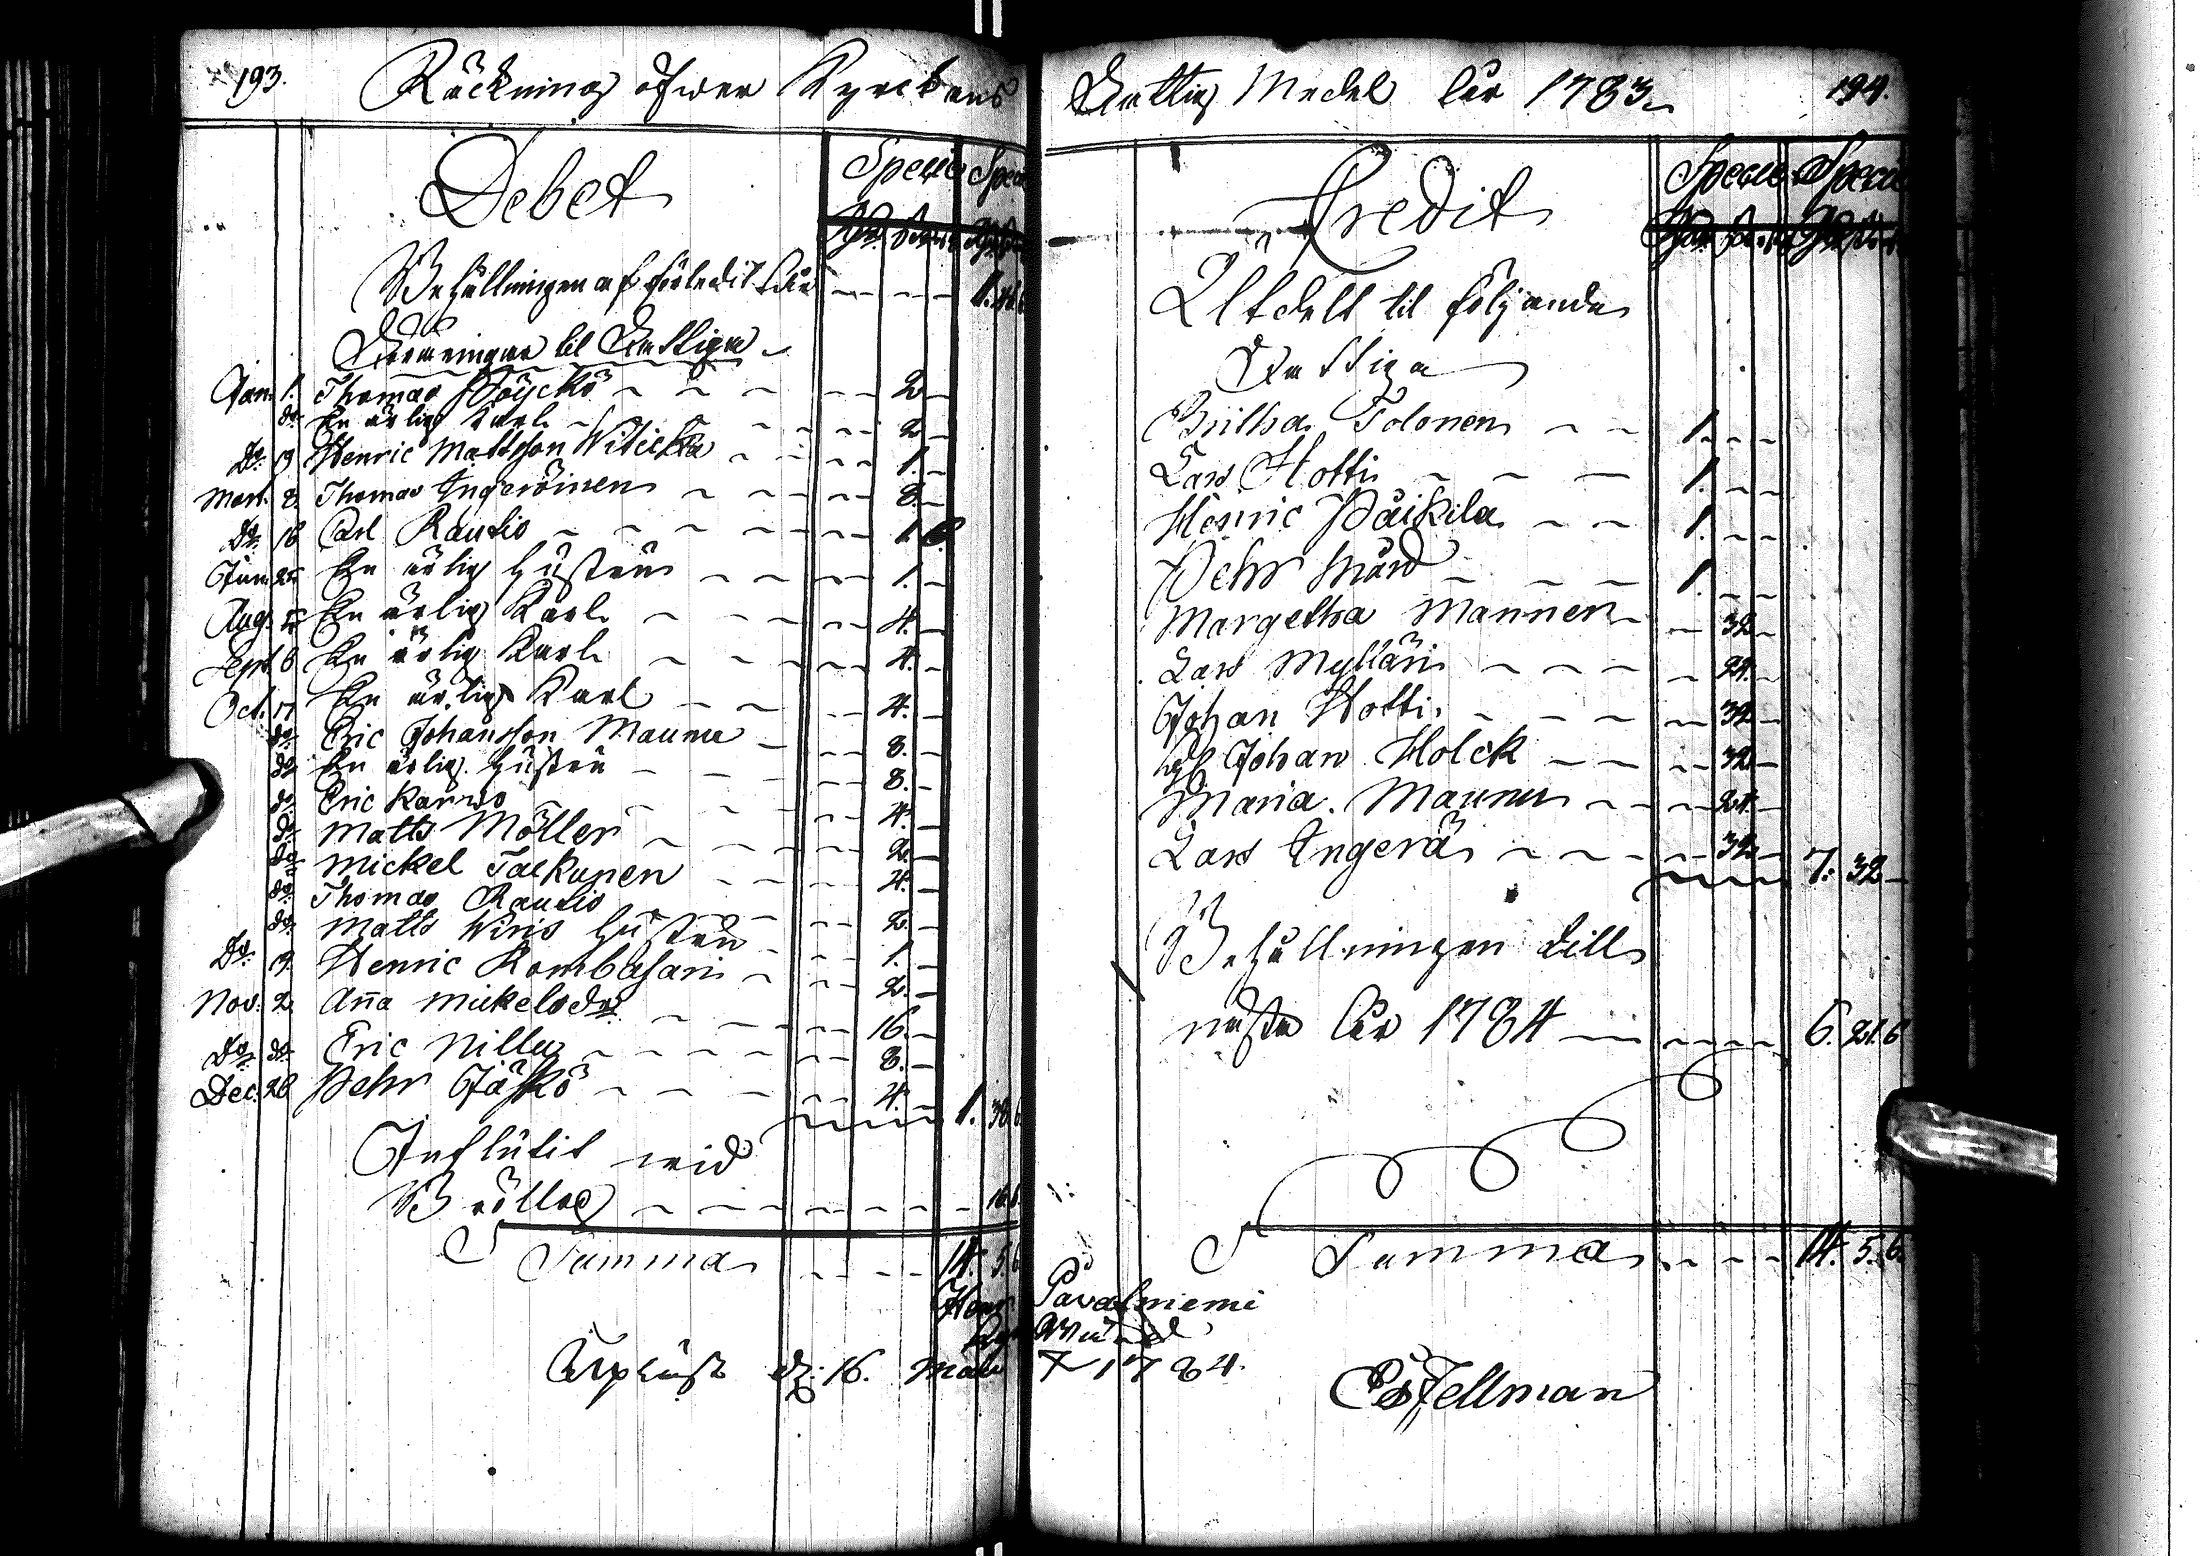 193.
Räckning öfwer Kyrckans
Debet
Specie Specie
Behållningen af förledit åhr - - - - 1.
Föräringar til Fattiga
Jan. 1. Thomas Pöyckö - - - 2 -
do En ärlig karl - - - 2 -
Do 19 Henric Mattsson Witicka - - 1. -
Mart. 8. Thomas Ingeröinen - - 8. -
Do 16 Carl Rautio - - - 1. 6.
Jun. 25 En ärlig hustru - - - 1. -
Aug. En ärlig Karl - - - 4. -
Sept. 6 En ärlig Karl - - - 4. -
Oct. 17 En ärlig Karl - - - 4. -
do Eric Johansson Maunu - - 8. -
do En ärlig hustru - - - 8. -
do Eric Karwo - - - 4. -
do Matts Möller - - - 2. -
do Mickel Talkunen - - - 4. -
do Thomas Rautio - - - 2. -
do Matts Wiris hustru - - 1. -
Do 19. Henric Kombasari - - 2. -
Nov. 2. Aña Mickelsdr - - - 16. -
Do do Eric Nilluz - - - 8. -
Dec. 26 Pehr Jäskö - - - 4. - 1. 38. 6
Influtit wid
Bröllop - - - - - 16. 6
Summa - - - - 14. 5. 6
Fattig Medel åhr 1783.
194.
Credit
Specie Specie
Utdelt til följande
Fattiga
Britha Tolonen - - 1. - -
Lars Hotti - - - 1. - -
Henric Päikilä - - 1. - -
Pehr Mård - - - 1. - -
Margetha Mannen - - 32 -
Lars Mylläri - - - 24. -
Johan Hotti - - - 32 -
Johan Holck - - - 32 -
Maria Maunu - - - 24. -
Lars Ingerä - - - 32 - 7. 32 -
Behållningen till
nästa åhr 1784 - - - 6. 21. 6
Summa - - - 14. 5. 6.
Henr. Pavalniemi
16. 1784.
Es Fellman